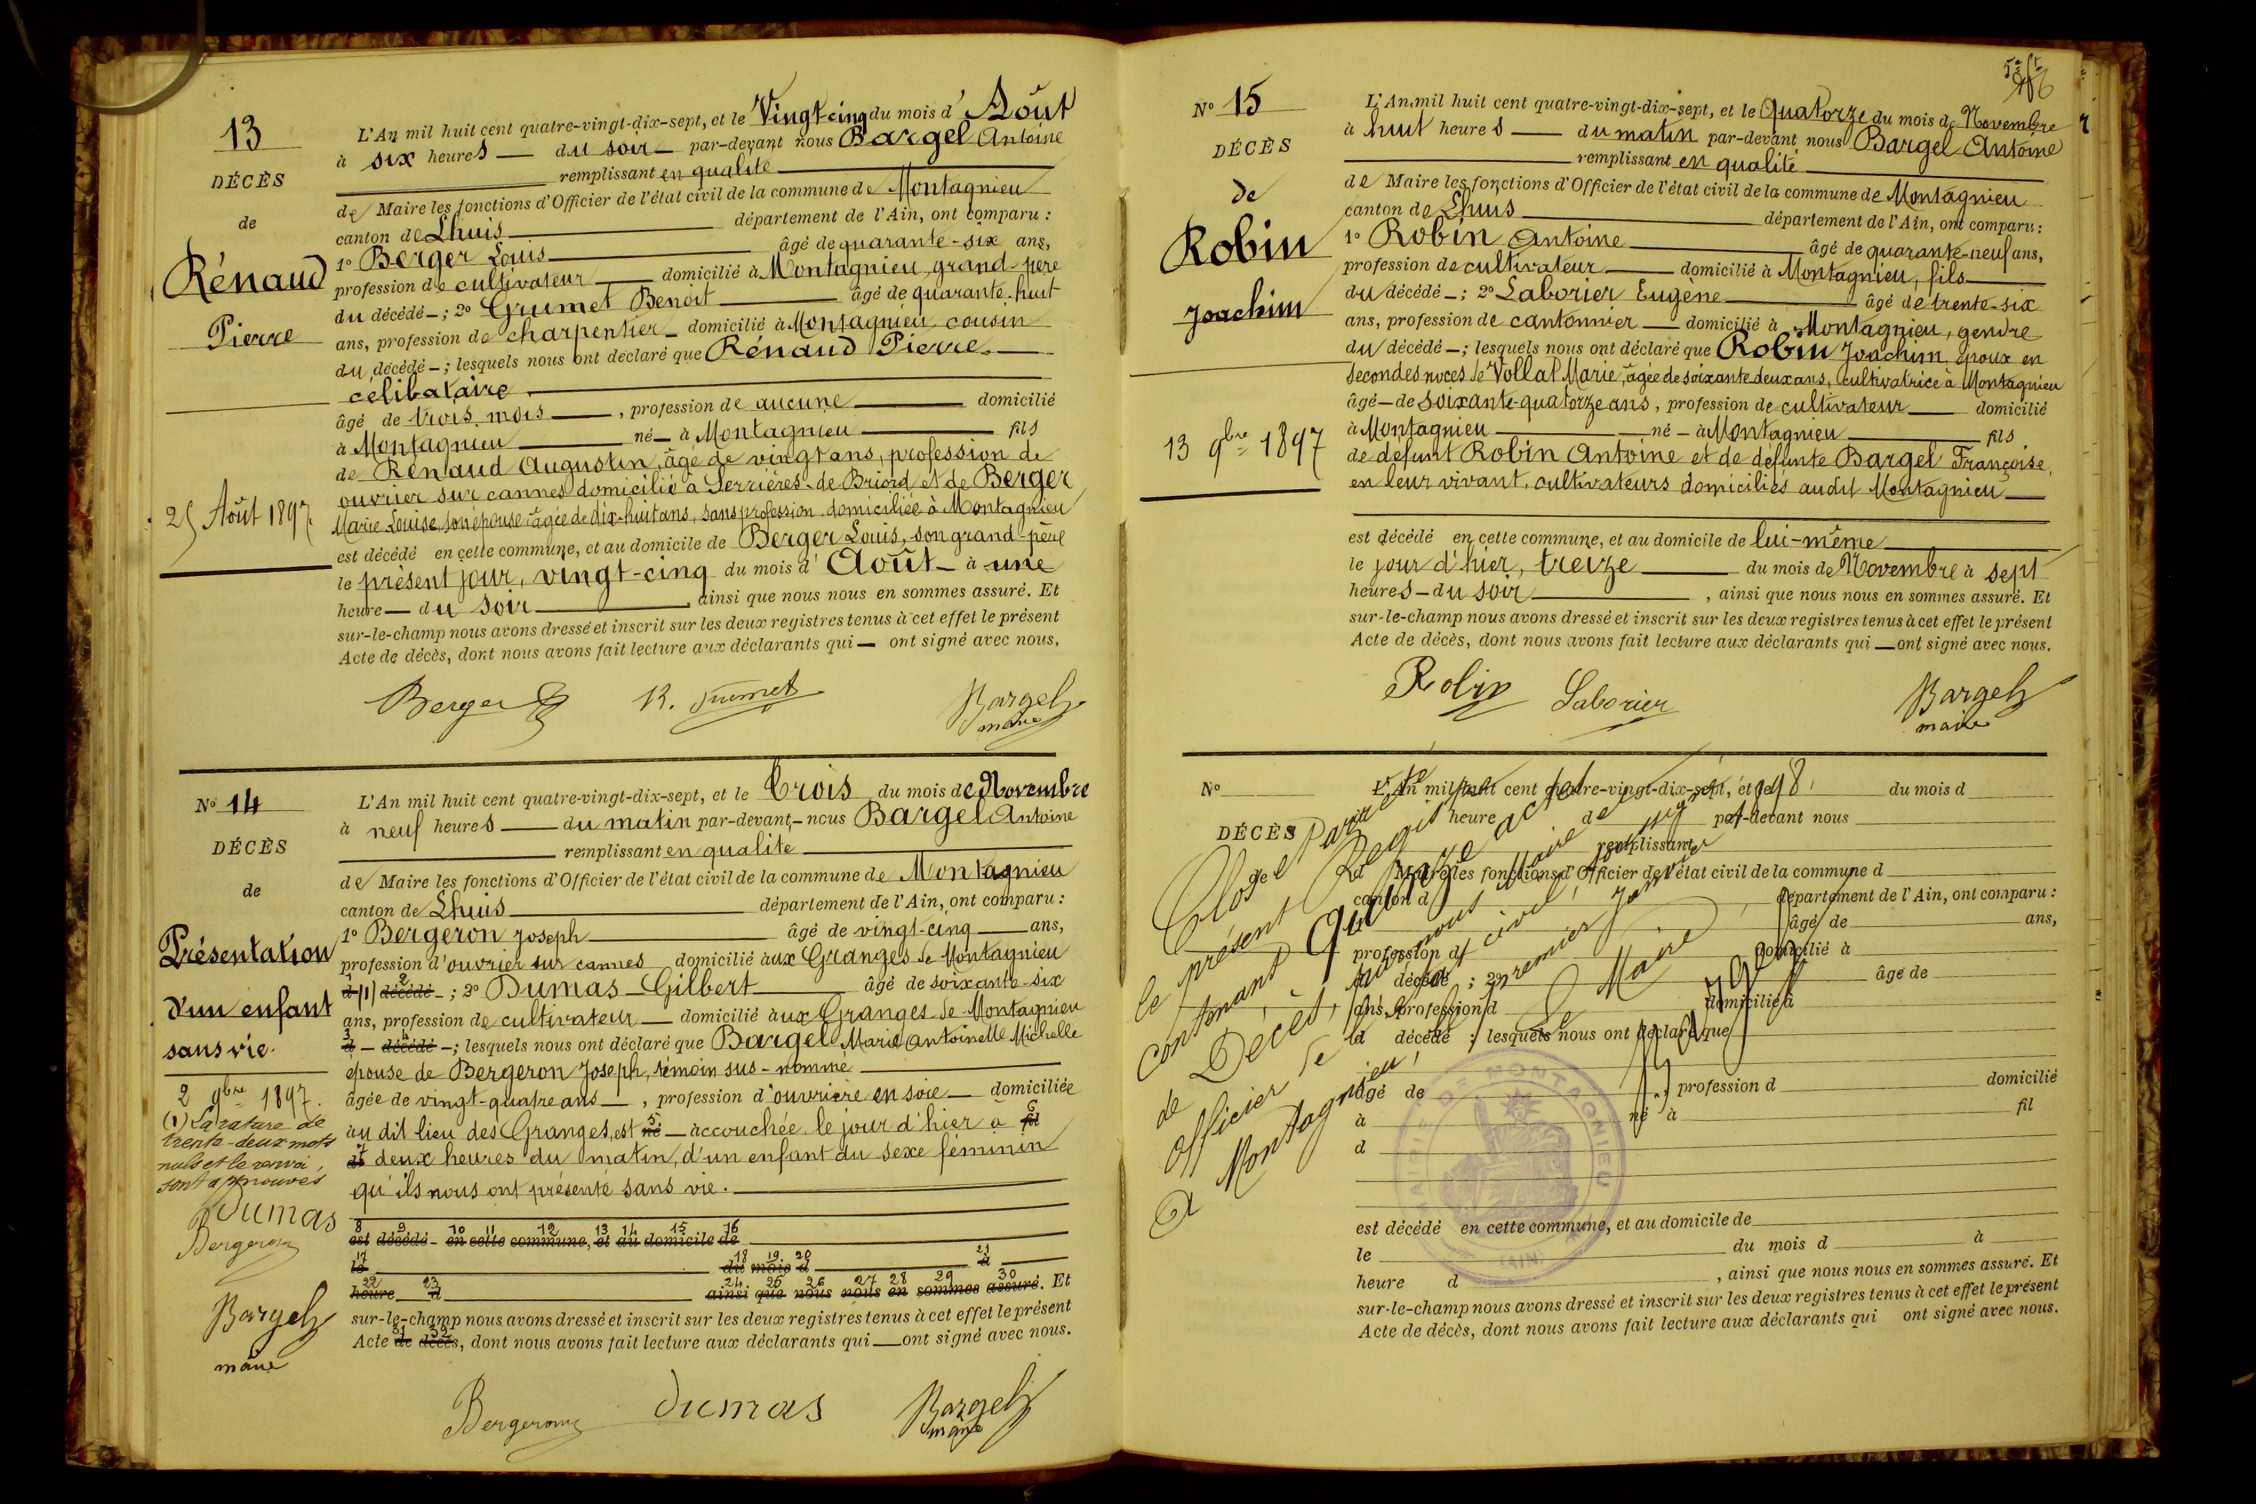 13
DÉCÈS
de
Rénaud
Pierre
25 Août 1897.
L'An mil huit cent quatre-vingt-dix-sept, et le Vingt cinq du mois d'Août
à six heures du soir par-devant nous Bargel Antoine
remplissant en qualité
de Maire les fonctions d'Officier de l'état civil de la commune de Montagnieu
canton de Lhuis département de l'Ain, ont comparu :
1º Berger Louis âgé de quarante-six ans,
profession de cultivateur domicilié à Montagnieu, grand-père
du décédé ; 2º Grumet Benoit âgé de quarante-huit
ans, profession de charpentier domicilié à Montagnieu, cousin
du décédé ; lesquels nous ont déclaré que Rénaud Pierre
célibataire
âgé de trois mois, profession de aucune domicilié
à Montagnieu né à Montagnieu fils
de Rénaud Augustin, âgé de vingt ans, profession de
ouvrier sur cannes domicilié à Serrières-de-Briord et de Berger
Marie Louise son épouse âgée de dix-huit ans, sans profession domiciliée à Montagnieu
est décédé en cette commune, et au domicile de Berger Louis, son grand-père
le présent jour, vingt-cinq du mois d'Août à une
heure du soir, ainsi que nous nous en sommes assuré. Et
sur-le-champ nous avons dressé et inscrit sur les deux registres tenus à cet effet le présent
Acte de décès, dont nous avons fait lecture aux déclarants qui ont signé avec nous.
Berger B. Grumet Bargel
maire
Nº 14
DÉCÈS
de
Présentation
d'un enfant
sans vie.
2 9bre 1897.
(1) La rature de
trente-deux mots
nuls et le renvoi
sont approuvés
Dumas
Bergeron
Bargel
maire
L'An mil huit cent quatre-vingt-dix-sept, et le Trois du mois de Novembre
à neuf heures du matin par-devant nous Bargel Antoine
remplissant en qualité
de Maire les fonctions d'Officier de l'état civil de la commune de Montagnieu
canton de Lhuis département de l'Ain, ont comparu :
1º Bergeron Joseph âgé de vingt-cinq ans,
profession d'ouvrier sur cannes domicilié aux Granges de Montagnieu
d (1) décédé ; 2º Dumas Gilbert âgé de soixante-six
ans, profession de cultivateur domicilié aux Granges de Montagnieu
d décédé ; lesquels nous ont déclaré que Bargel Marie Antoinette Michelle
épouse de Bergeron Joseph, témoin sus-nommé
âgée de vingt-quatre ans, profession d'ouvrière en soie domiciliée
au dit lieu des Granges, est né accouchée le jour d'hier à fil
de deux heures du matin, d'un enfant du sexe féminin
qu'ils nous ont présenté sans vie.
8 9 10 11 12 13 14 15 16
est décédé en cette commune, et au domicile de
17 18 19 20 21
le du mois d à
22 23 24 25 26 27 28 29 30
heure d ainsi que nous nous en sommes assuré. Et
sur-le-champ nous avons dressé et inscrit sur les deux registres tenus à cet effet le présent
Acte de décès, dont nous avons fait lecture aux déclarants qui ont signé avec nous.
Bergeron Dumas Bargel
maire
Nº 15
DÉCÈS
de
Robin
Joachim
13 9bre 1897
L'An mil huit cent quatre-vingt-dix-sept, et le Quatorze du mois de Novembre
à huit heures du matin par-devant nous Bargel Antoine
remplissant en qualité
de Maire les fonctions d'Officier de l'état civil de la commune de Montagnieu
canton de Lhuis département de l'Ain, ont comparu :
1º Robin Antoine âgé de quarante-neuf ans,
profession de cultivateur domicilié à Montagnieu, fils
du décédé ; 2º Laborier Eugène âgé de trente-six
ans, profession de cantonnier domicilié à Montagnieu, gendre
du décédé ; lesquels nous ont déclaré que Robin Joachim, époux en
secondes noces de Vollat Marie, âgée de soixante deux ans, cultivatrice à Montagnieu
âgé de soixante-quatorze ans, profession de cultivateur domicilié
à Montagnieu né à Montagnieu fils
de défunt Robin Antoine et de défunte Bargel Françoise,
en leur vivant, cultivateurs domiciliés audit Montagnieu
est décédé en cette commune, et au domicile de lui-même
le jour d'hier, treize du mois de Novembre à sept
heures du soir, ainsi que nous nous en sommes assuré. Et
sur-le-champ nous avons dressé et inscrit sur les deux registres tenus à cet effet le présent
Acte de décès, dont nous avons fait lecture aux déclarants qui ont signé avec nous.
Robin Laborier Bargel
maire
Nº
DÉCÈS
de
L'An mil huit cent quatre-vingt-dix-sept, et le du mois d
heure d par-devant nous
remplissant
d Maire les fonctions d'Officier de l'état civil de la commune d
canton d département de l'Ain, ont comparu :
âgé de ans,
profession d domicilié à
décédé ; 2º âgé de
ans, profession d domicilié à
d décédé ; lesquels nous ont déclaré que
âgé de, profession d domicilié
à né à fil
d
est décédé en cette commune, et au domicile de
le du mois d à
heure d, ainsi que nous nous en sommes assuré. Et
sur-le-champ nous avons dressé et inscrit sur les deux registres tenus à cet effet le présent
Acte de décès, dont nous avons fait lecture aux déclarants qui ont signé avec nous.
Clos
le présent Registre
contenant quinze actes
de Décès, par nous Maire
officier de l'état civil, soussigné
A Montagnieu, le premier Janvier 98
Le Maire
Bargel
MAIRIE DE MONTAGNIEU
(AIN)